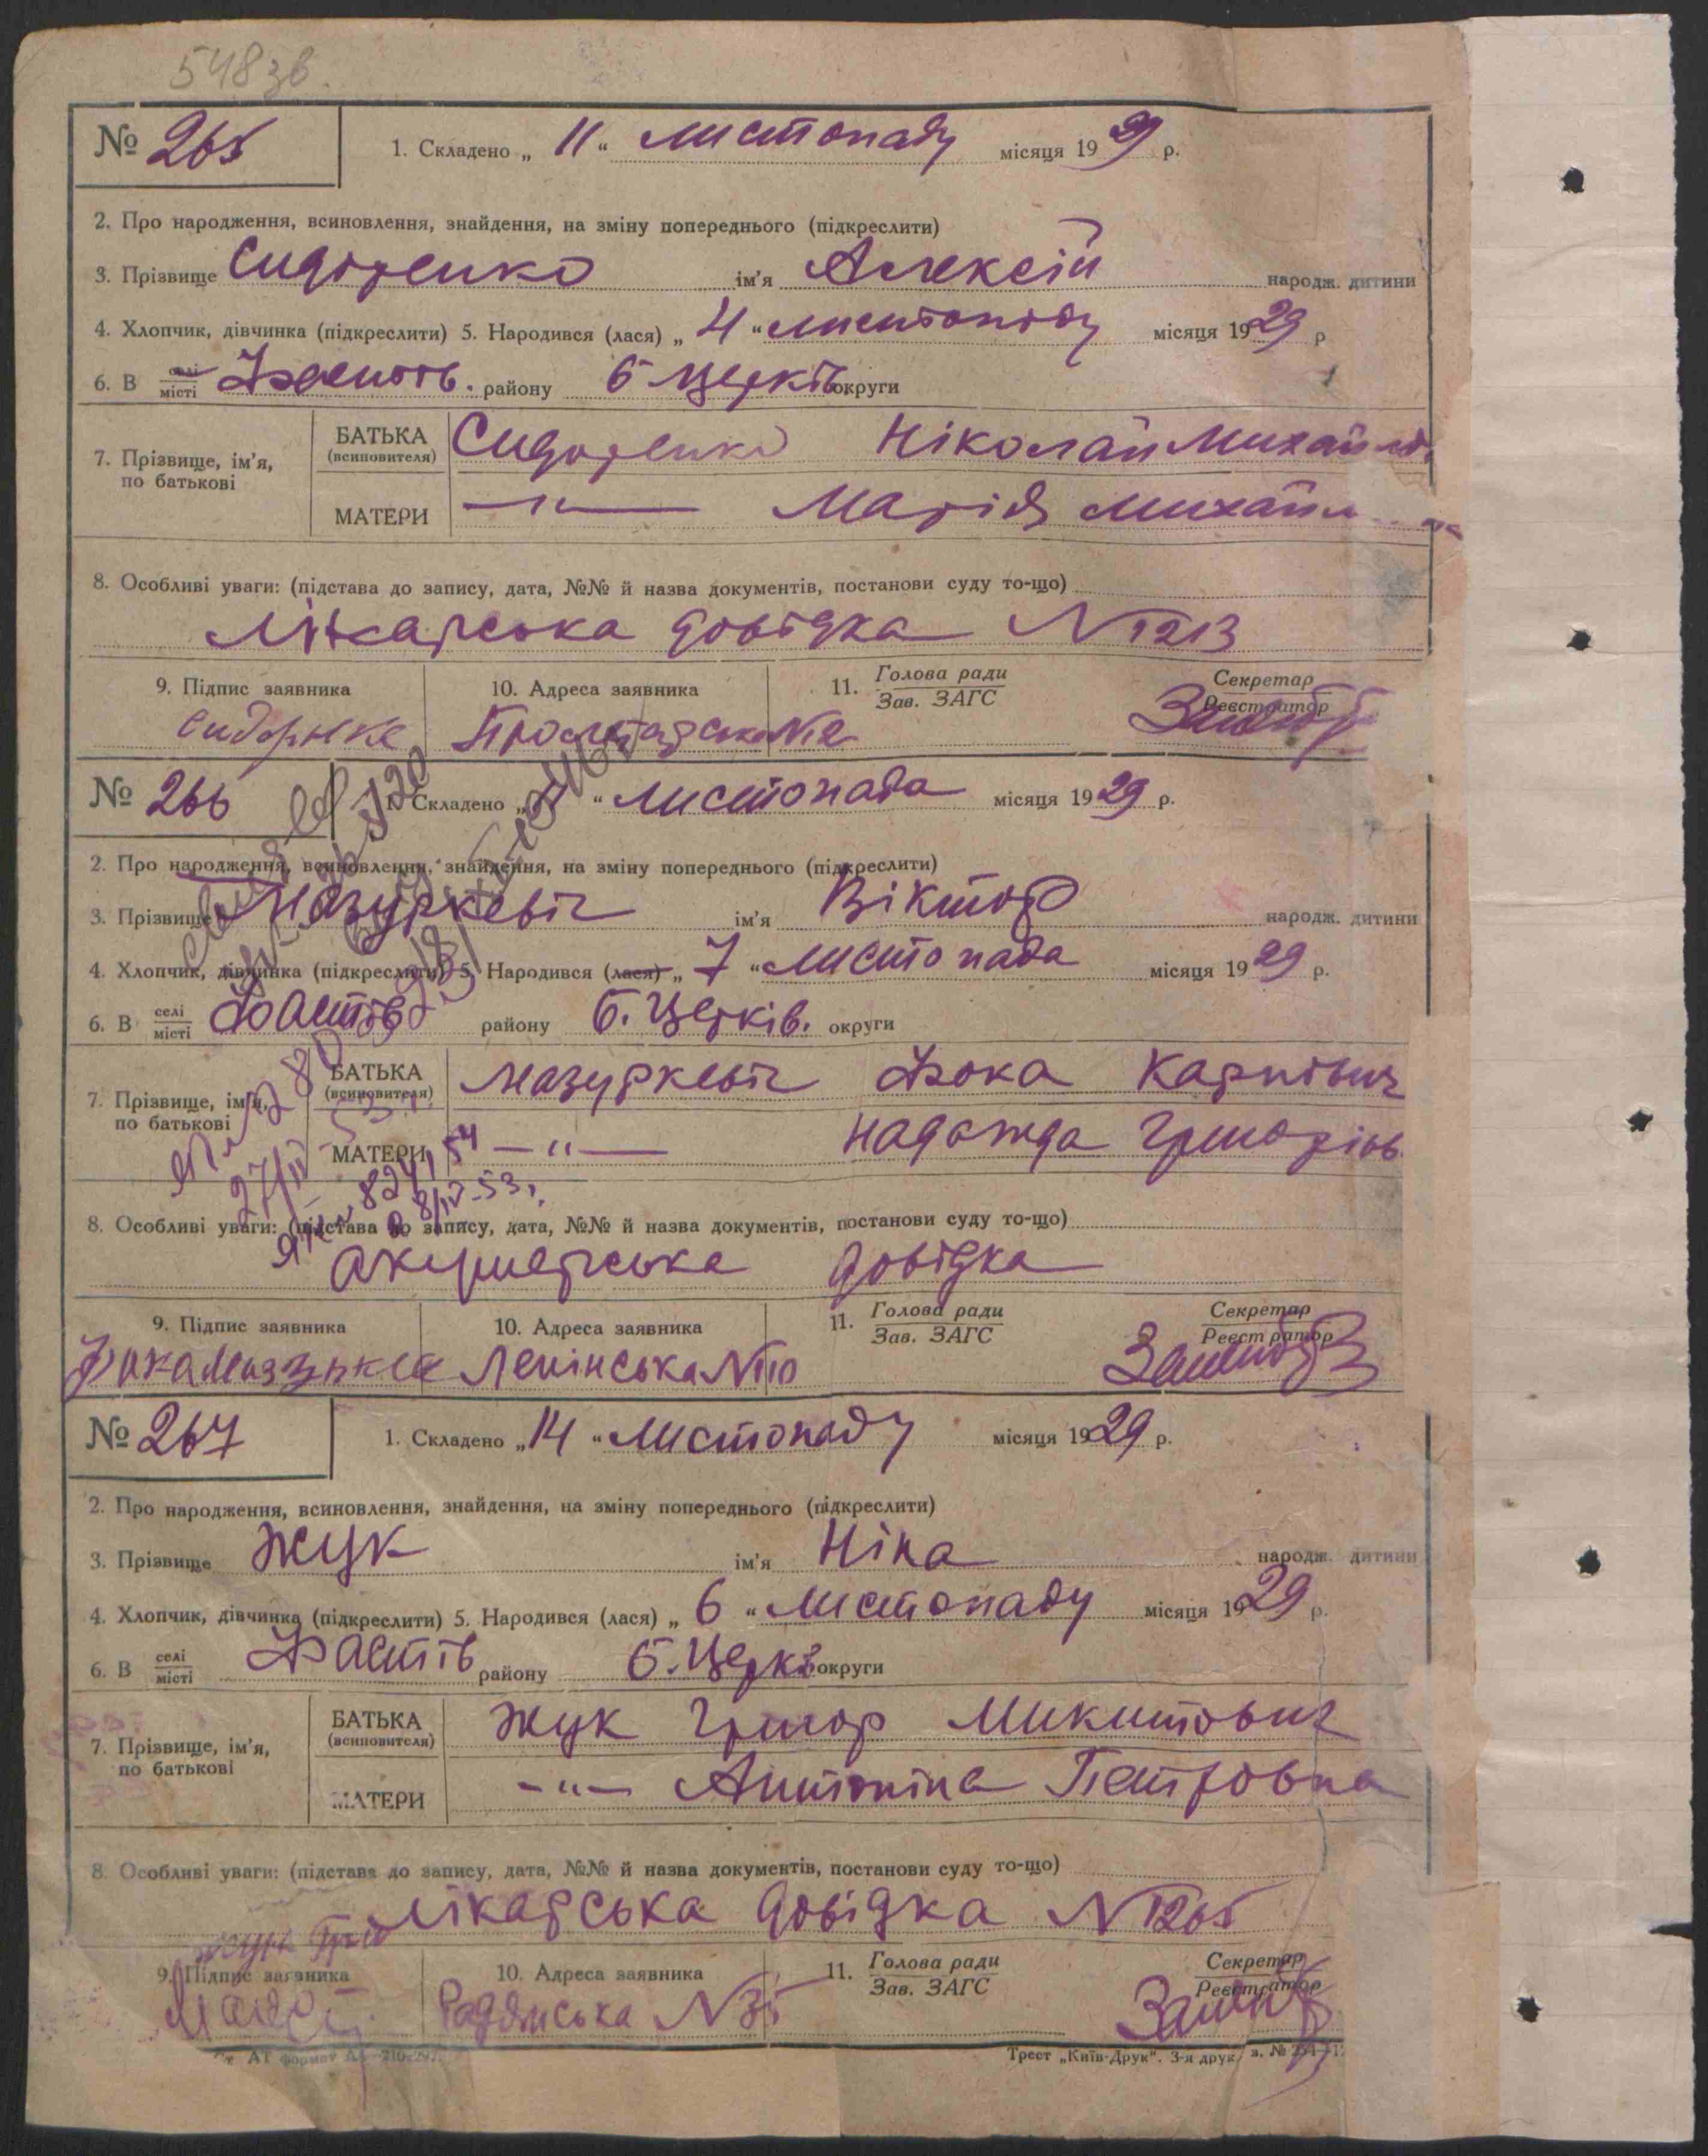 548зв.
№ 265
1. Складено „ 11 “ листопаду місяця 1929 р.
2. Про народження, всиновлення, знайдення, на зміну попереднього (підкреслити)
3. Прізвище Сидоренко ім’я Алексій народж. дитини
4. Хлопчик, дівчинка (підкреслити) 5. Народився (лася) „ 4 “ листопаду місяця 1929 р
6. В селі/місті Фастів. району Б Церків округи
7. Прізвище, ім’я, по батькові
БАТЬКА (всиновителя) Сидоренко Ніколай Михайлов.
МАТЕРИ —"— Марія Михайл
8. Особливі уваги: (підстава до запису, дата, №№ й назва документів, постанови суду то-що)
Лікарська довідка N 1213
9. Підпис заявника 10. Адреса заявника 11. Голова ради/Зав. ЗАГС Секретар/Реєстратор
Сидорнке Пролетарська №
№ 266
1. Складено „ “ листопада місяця 1929 р.
2. Про народження, всиновлення, знайдення, на зміну попереднього (підкреслити)
3. Прізвище Мазуркевіч ім’я Віктор народж. дитини
4. Хлопчик, дівчинка (підкреслити) 5. Народився (лася) „ 7 “ листопада місяця 1929 р.
6. В селі/місті Фастів району Б. Церків. округи
7. Прізвище, ім’я, по батькові
БАТЬКА (всиновителя) Мазуркевіч Фока Карпівич
МАТЕРИ —"— Надежда Григорівн.
27/IV-53 г.
8/IV-53 г.
8. Особливі уваги: (підстава до запису, дата, №№ й назва документів, постанови суду то-що)
акушерська довідка
9. Підпис заявника 10. Адреса заявника 11. Голова ради/Зав. ЗАГС Секретар/Реєстратор
Фока Ленінська N 110
№ 267
1. Складено „ 14 “ листопаду місяця 1929 р.
2. Про народження, всиновлення, знайдення, на зміну попереднього (підкреслити)
3. Прізвище Жук ім’я Ніна народж. дитини
4. Хлопчик, дівчинка (підкреслити) 5. Народився (лася) „ 6 “ листопаду місяця 1929 р.
6. В селі/місті Фастів району Б. Церків округи
7. Прізвище, ім’я, по батькові
БАТЬКА (всиновителя) Жук Григор Микитович
МАТЕРИ —"— Антоніна Петровна
8. Особливі уваги: (підстава до запису, дата, №№ й назва документів, постанови суду то-що)
Лікарська довідка N 1265
9. Підпис заявника 10. Адреса заявника 11. Голова ради/Зав. ЗАГС Секретар/Реєстратор
Радянська N 35
АТ формат А4—210×297. Трест „Київ-Друк“. 3-я друк. з. №